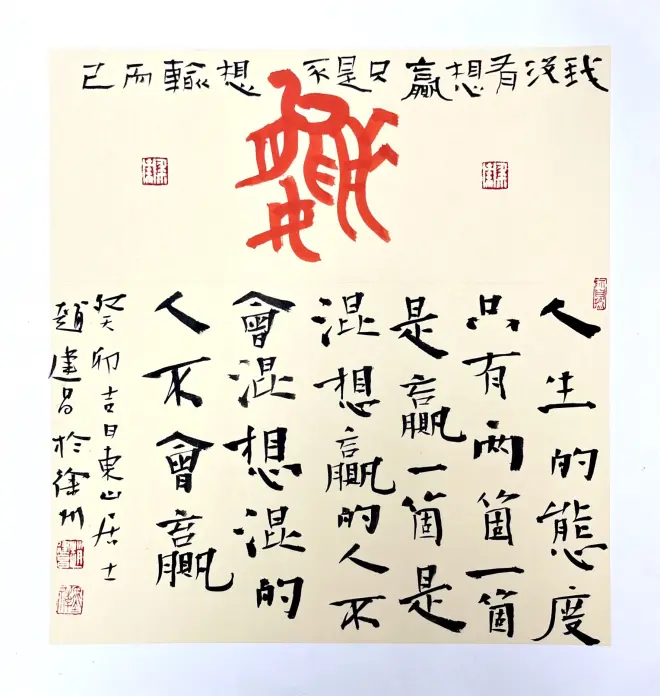 我没有想贏只是不想輸而已
人生的態度
只有兩箇一箇
是贏一箇是
混想贏的人不
會混想混的
人不會贏
癸卯吉日東山居士
趙建昌於徐州